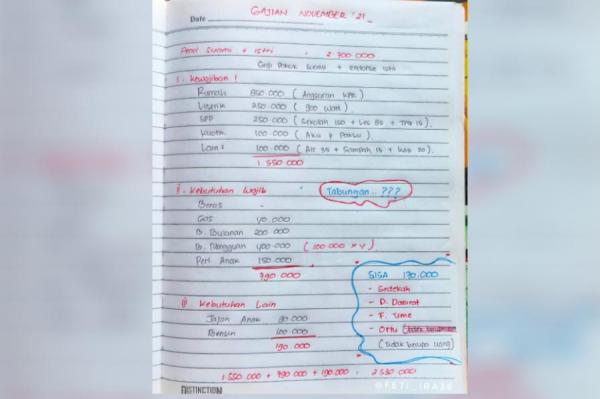 GAJIAN NOVEMBER '21
Date
Pend Suami + istri : 2.700.000
Gaji Pokok Suami + endorse istri
I. Kewajiban !
Rumah 850.000 ( Angsuran KPR )
Listrik 250.000 ( 900 Watt )
SPP 250.000 ( Sekolah 150 + Les 85 + TPQ 15 ).
Kuota 100.000 ( Aku & Paksu ).
Lain² 100.000 ( Air 35 + Sampah 15 + Kas 50 ).
1.550.000
II. Kebutuhan Wajib
Tabungan..???
Beras -
Gas 40.000
B. Bulanan 200.000
B. Mingguan 400.000 ( 100.000 x 4 )
Perl. Anak 150.000
790.000
III. Kebutuhan Lain
Jajan Anak 90.000
Bensin 100.000
190.000
SISA 170.000
- Sedekah
- D. Darurat
- F. Time
- Ortu
(tidak berupa uang)
1.550.000 + 790.000 + 190.000 = 2.530.000
DISTINCTION
@FETI_IRA26